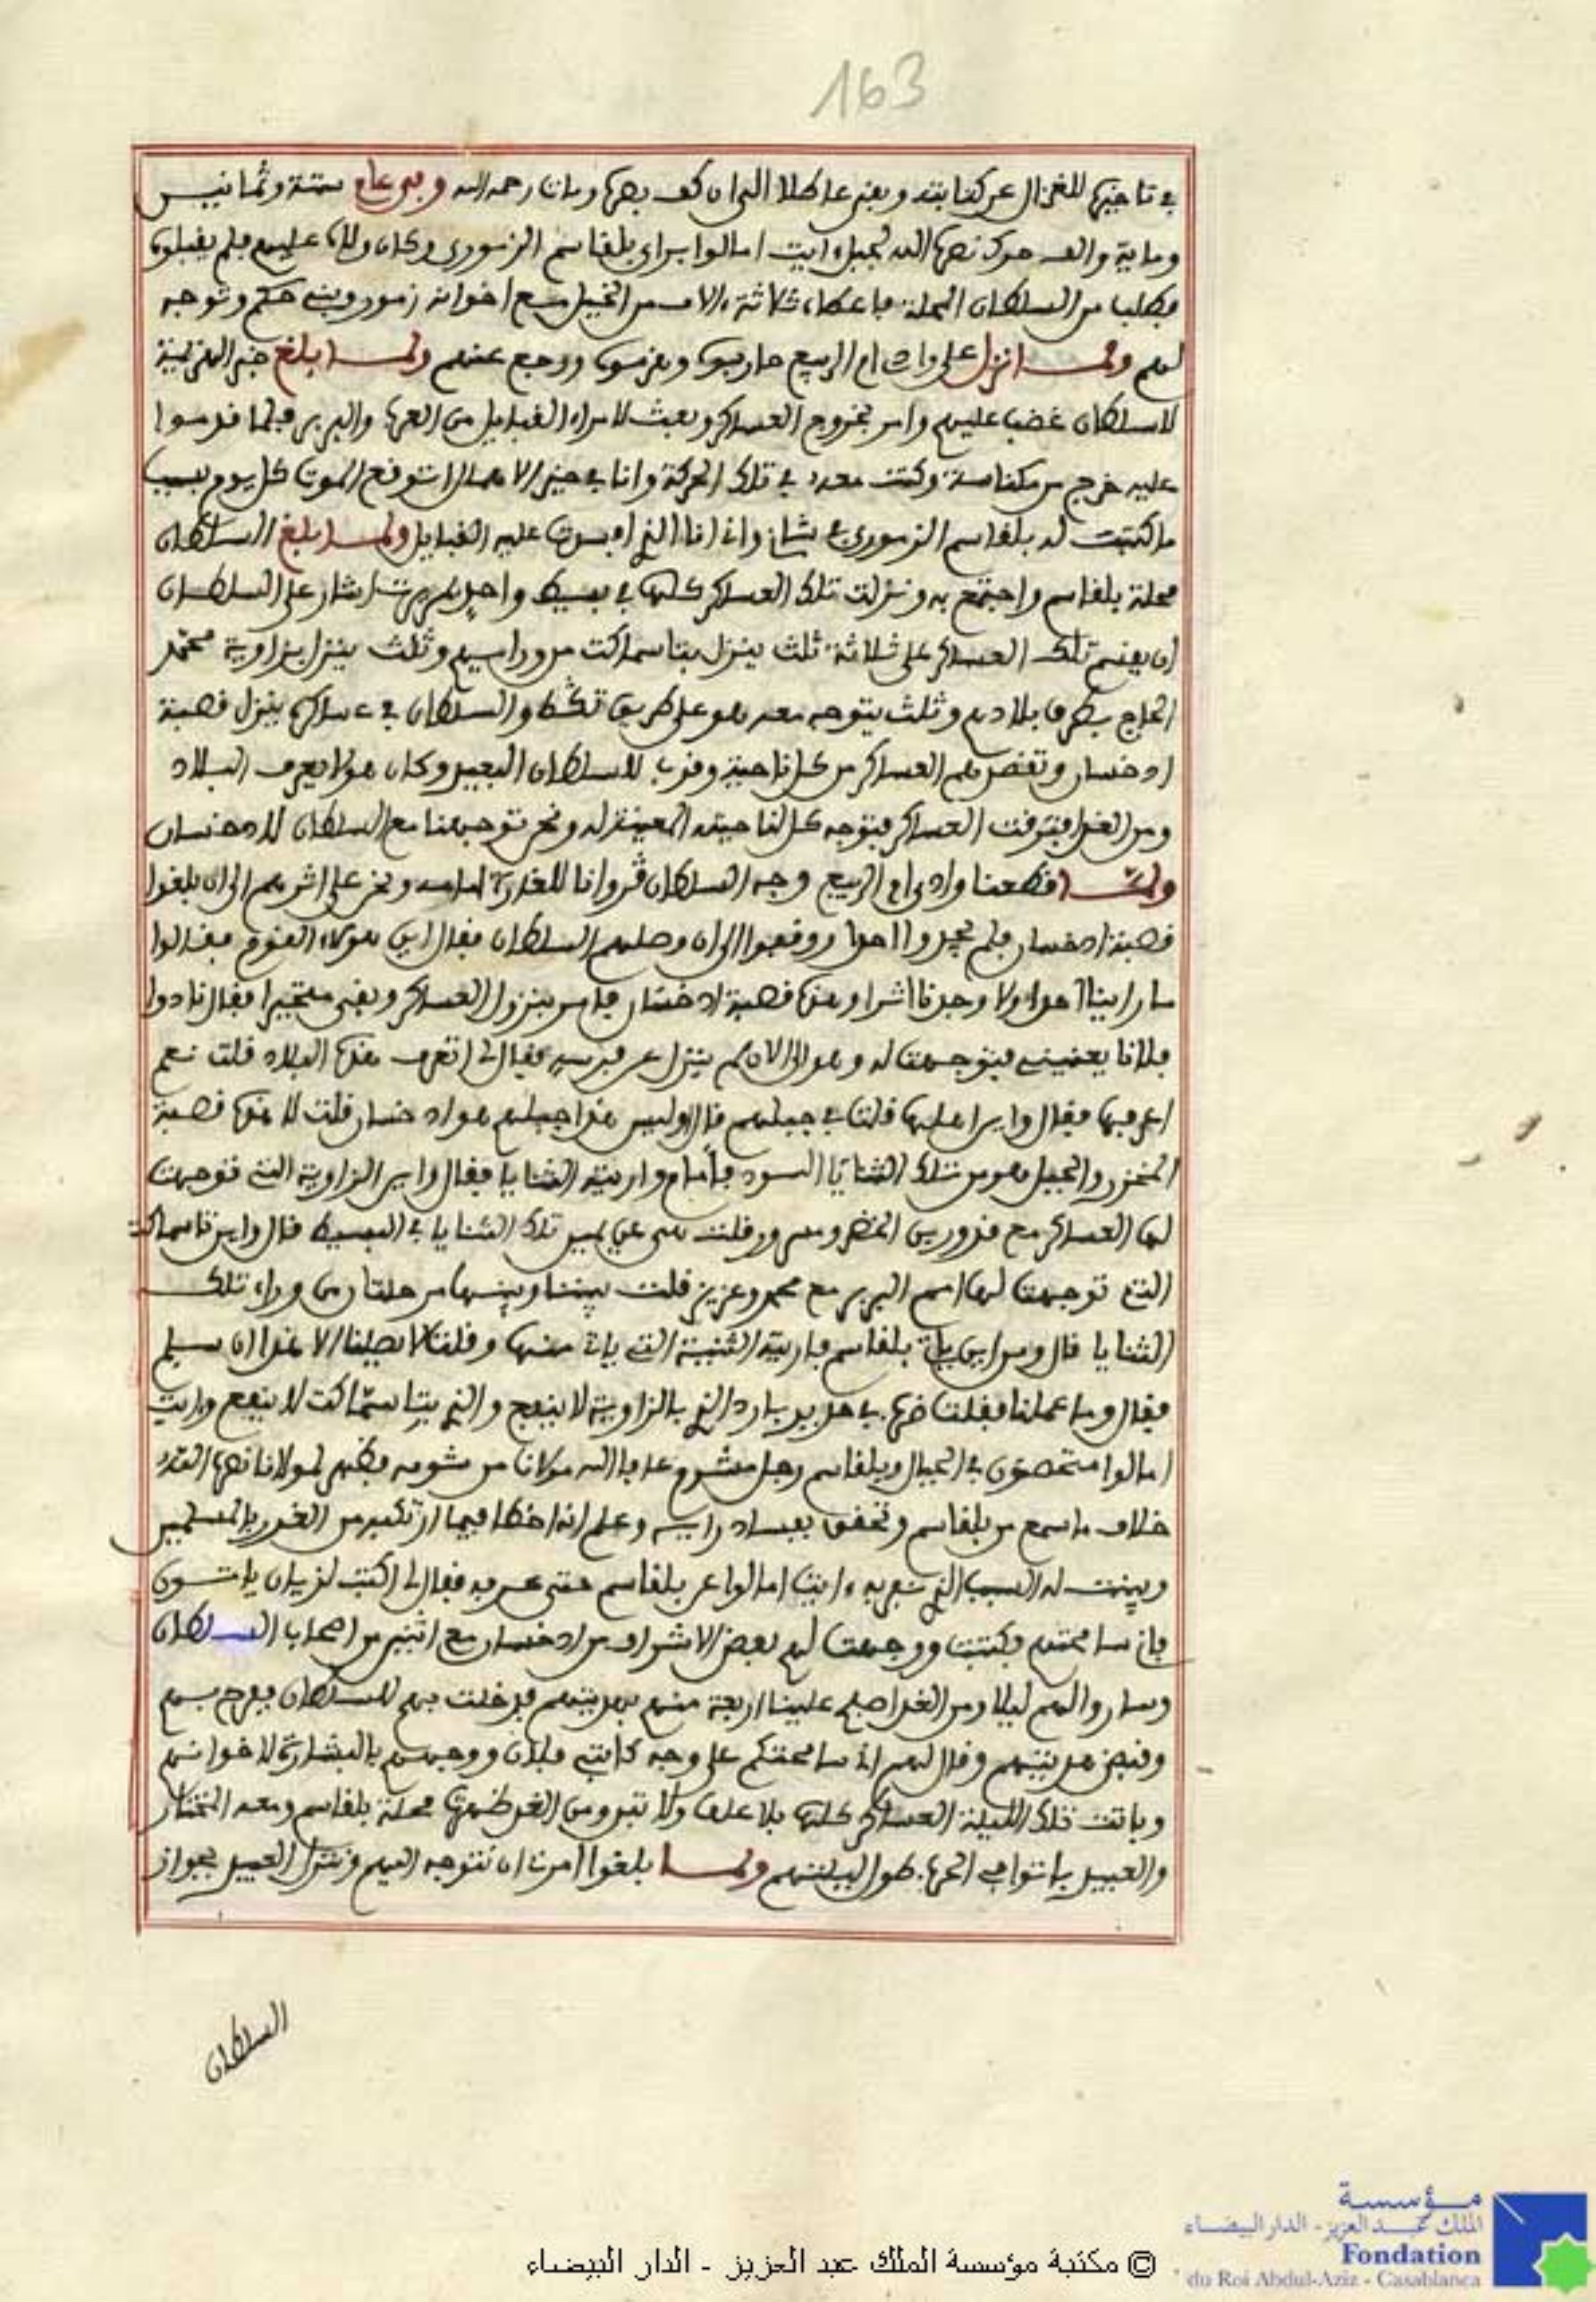 163
في تاخيرها للغزال عن كتابته وبقي عاطلا الى ان كف بصره ومات رحمه الله وفي عام ستة وثمانين
ومائة والف حرك نصره الله لجبل ايت امالوا براي بلقاسم الزموري وكان ولاه عليهم فلم يقبلوه
فطلب من السلطان المحلة فاعطاه ثلاثة ءالاف من الخيل مع اخوانه زمور وبني حكم وتوجه
لهم ولما نزل على واد ام الربيع حاربوه وهزموه ورجع عنهم ولما بلغ خبر الهزيمة
للسلطان غضب عليهم وامر بخروج العساكر وبعث لامراء القبايل من العرب والبربر فلما قدموا
عليه خرج من مكناسة وكنت معه في تلك الحركة وانا في حيز الاهمال اتوقع الموت كل يوم بسبب
ما كتبت له بلقاسم الزموري في شاني وانا الذي افسدت عليه القبايل ولما بلغ السلطان
محلة بلقاسم واجتمع به ونزلت تلك العساكر كلها في بسيط واحد اشار على السلطان
ان يقسم تلك العساكر على ثلاثة ثلث ينزل بتاسماكت من ورايهم وثلث ينزل بزاوية محمد
الحاج بطرف بلادهم وثلث يتوجه معه هو على طريق تكط والسلطان في عساكره ينزل قصبة
ادخسان وتقصدهم العساكر من كل ناحية وقرب للسلطان البعيد وكان هو لا يعرف البلاد
ومن الغد افترقت العساكر فتوجه كل لناحيته المعينة له ونحن توجهنا مع السلطان لادخسان
ولما قطعنا وادي ام الربيع وجه السلطان فروانا للغارة امامه ونحن على اثرهم الى ان بلغوا
قصبة ادخسان فلم يجدوا احدا ووقفوا الى ان وصلهم السلطان فقال اين هولاء القوم فقالوا
ما راينا احدا ولا وجدنا اثرا وهذه قصبة ادخسان فامر بنزول العساكر وبقي متحيرا فقال نادوا
فلانا يعنيني فتوجهت له وهو الى الان لم ينزل عن فرسه فقال لي اتعرف هذه البلاد قلت نعم
اعرفها فقال واين اهلها قلت في جبلهم قال اوليس هذا جبلهم هو ادخسان قلت لا هذه قصبة
المخزن والجبل هو من تلك الثنايا السود فامام واريته الثنايا فقال واين الزاوية التي توجهت
لها العساكر مع قدور بن الخضر ومسرور قلت هي عن يمين تلك الثنايا في البسيط قال واين تاسماكت
التي توجهت لها امم البربر مع محمد وعزيز قلت بيننا وبينها مرحلتان من وراء تلك
الثنايا قال ومن اين ياتي بلقاسم فاريته الثنية التي ياتي منها وقلت لا يصلنا الا غدا ان سلم
فقال وما عملنا فقلت ضرب في حديد بارد الذي بالزاوية لا ينفع والذي بتاسماكت لا ينفع وايت
امالوا متحصنون في الجبال وبلقاسم رجل مشوم عافا الله مولانا من شومه فظهر لمولانا نصره الله
خلاف ما سمع من بلقاسم وتحقق بفساد رايه وعلم انه اخطا فيما ارتكبه من الغدر بالمسلمين
وبينت له السبب الذي نفر به ءايت امالوا عن بلقاسم حتى عرفه فقال لي اكتب لهم ان ياتون
فاني سامحتهم فكتبت ووجهت لهم بعض الاشراف من ادخسان مع اثنين من اصحاب السلطان
وساروا لهم ليلا ومن الغد اصبح علينا اربعة منهم بهديتهم فدخلت بهم للسلطان ففرح بهم
وقبض هديتهم وقال لهم اني سامحتكم على وجه كاتبي فلان ووجههم بالبشارة لاخوانهم
وباتت تلك الليلة العساكر كلها بلا علف ولا تبن ومن الغد ظهرت محلة بلقاسم ومعه المختار
والعبيد باتوا في الحرب طول ليلتهم ولما بلغوا امرني ان نتوجه اليهم ونترك العبيد بجواز
السلطان
© مكتبة مؤسسة الملك عبد العزيز - الدار البيضاء
مؤسسة
الملك عبد العزيز - الدار البيضاء
Fondation
du Roi Abdul-Aziz - Casablanca